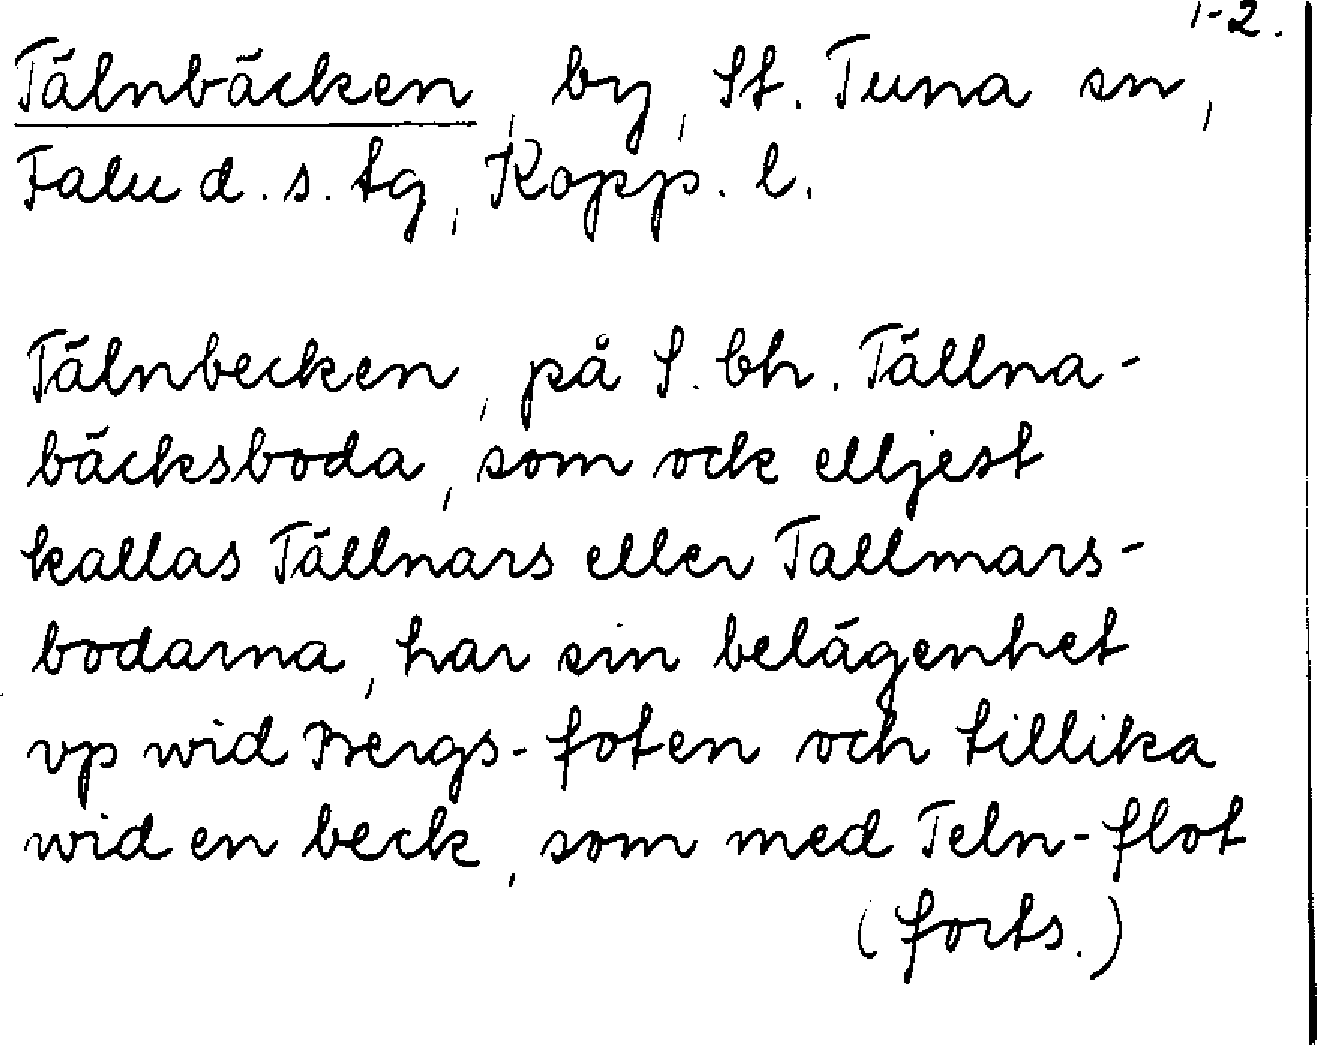 1-2.
Tälnbäcken, by, St. Tuna sn,
Falu d. s. tg, Kopp. l.
Tälnbecken, på S. bh. Tällna-
bäcksboda, som ock elljest
kallas Tällnars eller Tallmars-
bodarna, har sin belägenhet
vp wid Bergs-foten och tillika
wid en beck, som med Teln-flot
(forts.)